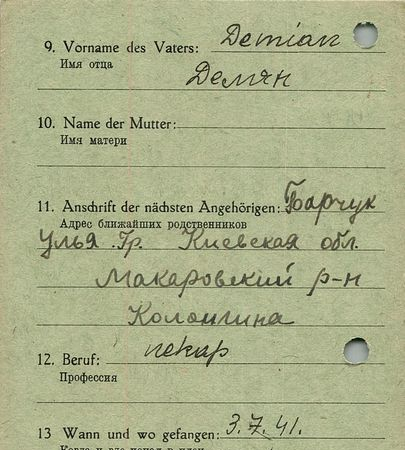 9. Vorname des Vaters: Demian
Имя отца
Демян
10. Name der Mutter:
Имя матери
11. Anschrift der nächsten Angehörigen: Барчук
Адрес ближайших родственников
Улья .Гр. Киевская обл.
Макаровский р-н
Колонгина
12. Beruf: пекар
Профессия
13 Wann und wo gefangen: 3.7.41.
Когда и где попал в плен